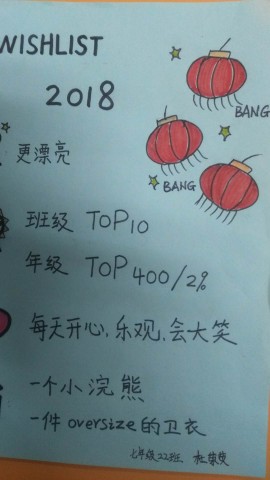 WISHLIST
2018
BANG
更漂亮
BANG
班级 TOP10
年级 TOP400/2%
每天开心,乐观,会大笑
一个小浣熊
一件oversize的卫衣
七年级22班